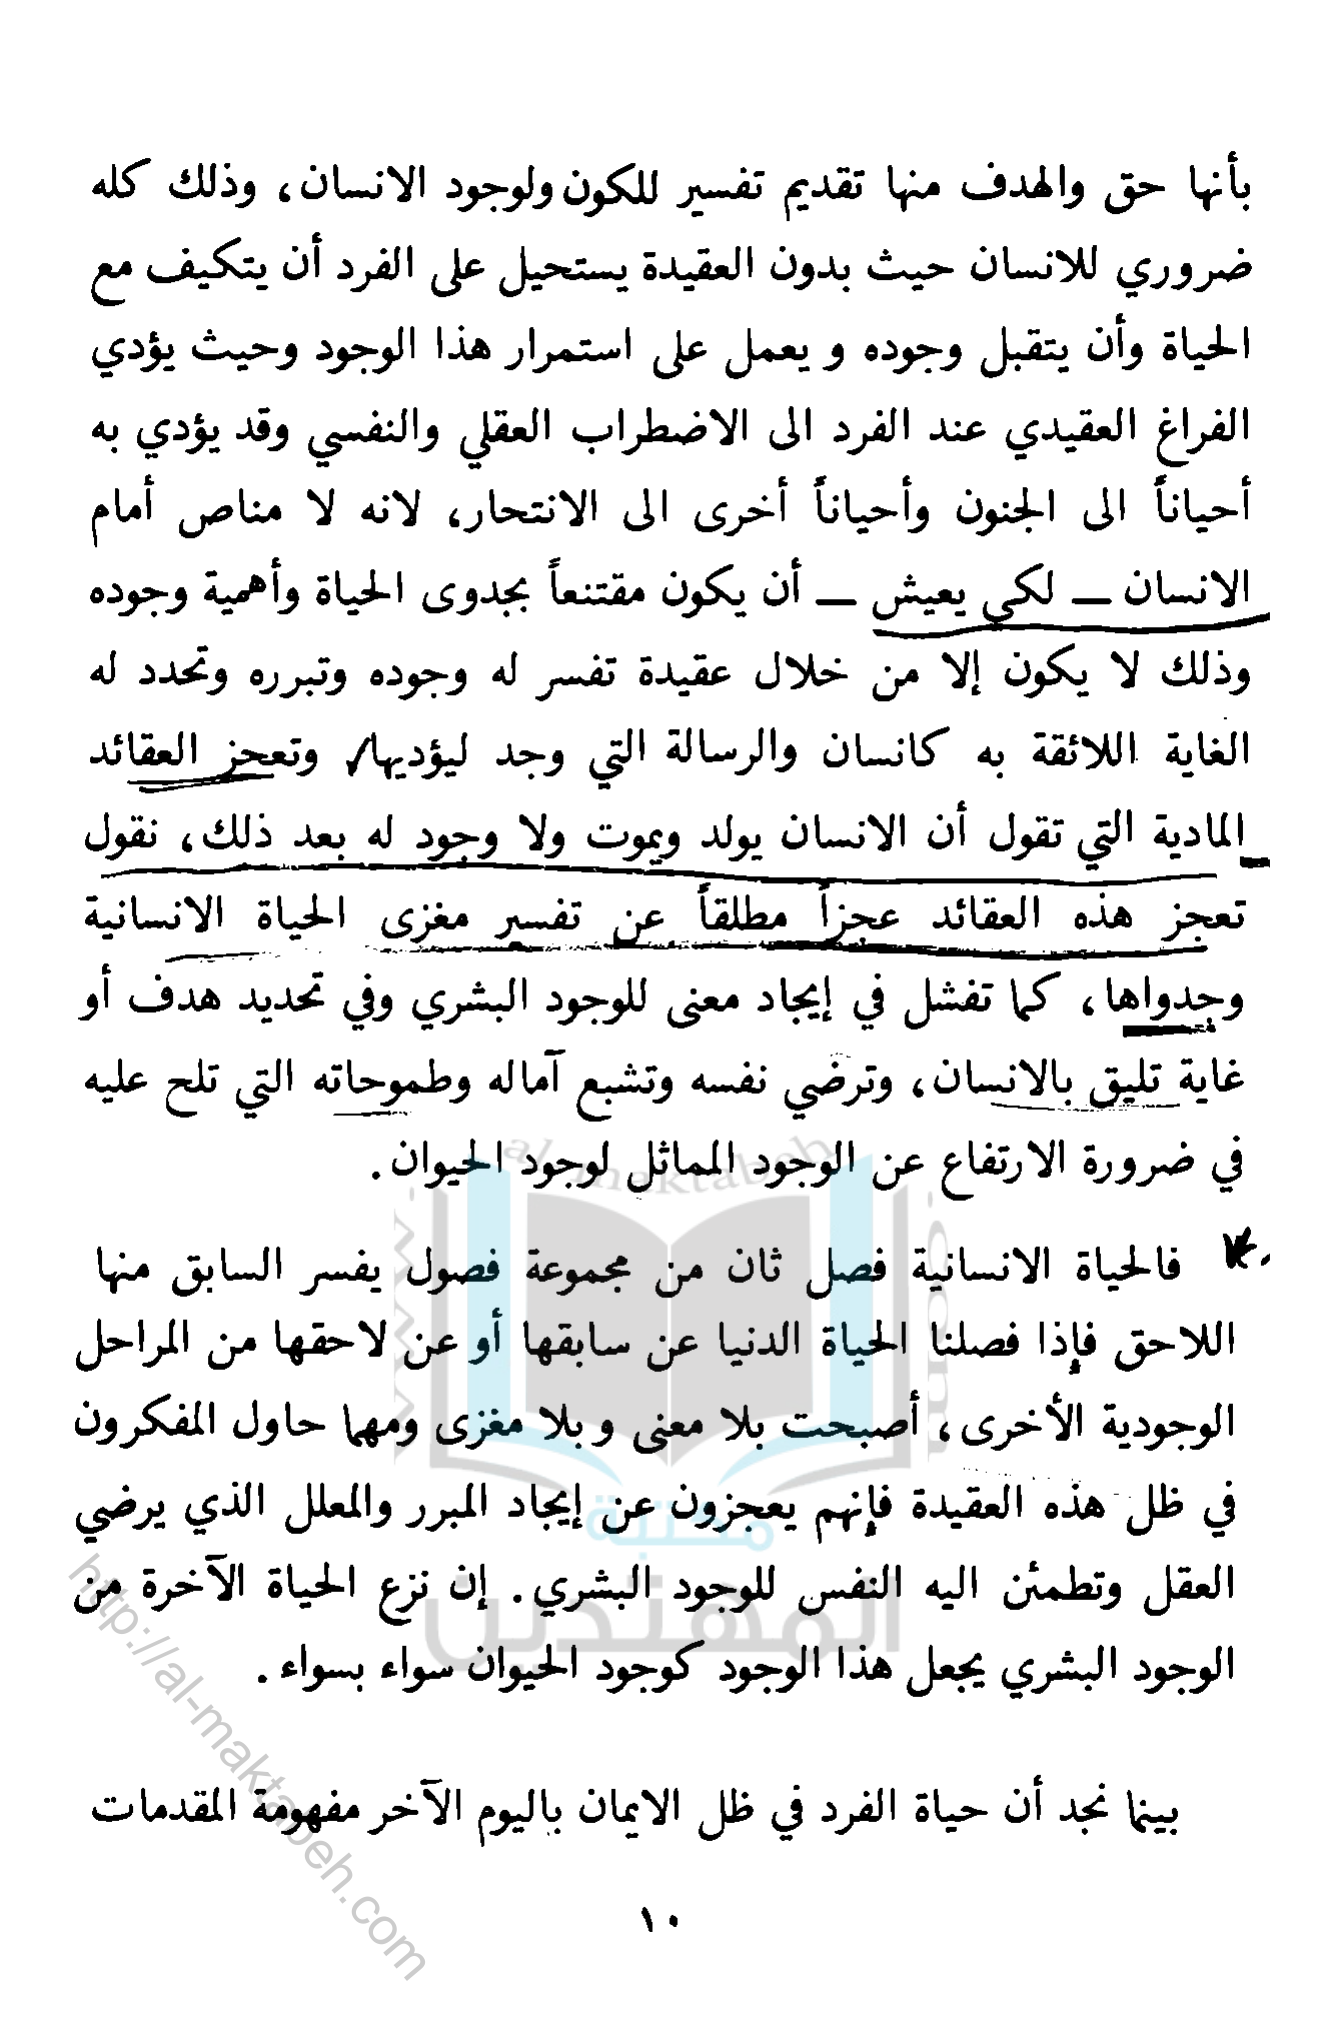 بأنها حق والهدف منها تقديم تفسير للكون ولوجود الانسان، وذلك كله
ضروري للانسان حيث بدون العقيدة يستحيل على الفرد أن يتكيف مع
الحياة وأن يتقبل وجوده و يعمل على استمرار هذا الوجود وحيث يؤدي
الفراغ العقيدي عند الفرد الى الاضطراب العقلي والنفسي وقد يؤدي به
أحياناً الى الجنون وأحياناً أخرى الى الانتحار، لانه لا مناص أمام
الانسان ــ لكي يعيش ــ أن يكون مقتنعاً بجدوى الحياة وأهمية وجوده
وذلك لا يكون إلا من خلال عقيدة تفسر له وجوده وتبرره وتحدد له
الغاية اللائقة به كانسان والرسالة التي وجد ليؤديها/ وتعجز العقائد
المادية التي تقول أن الانسان يولد ويموت ولا وجود له بعد ذلك، نقول
تعجز هذه العقائد عجزاً مطلقاً عن تفسير مغزى الحياة الانسانية
وجدواها، كما تفشل في إيجاد معنى للوجود البشري وفي تحديد هدف أو
غاية تليق بالانسان، وترضي نفسه وتشبع آماله وطموحاته التي تلح عليه
في ضرورة الارتفاع عن الوجود المماثل لوجود الحيوان.
فالحياة الانسانية فصل ثان من مجموعة فصول يفسر السابق منها
اللاحق فإذا فصلنا الحياة الدنيا عن سابقها أو عن لاحقها من المراحل
الوجودية الأخرى، أصبحت بلا معنى و بلا مغزى ومهما حاول المفكرون
في ظل هذه العقيدة فإنهم يعجزون عن إيجاد المبرر والمعلل الذي يرضي
العقل وتطمئن اليه النفس للوجود البشري. إن نزع الحياة الآخرة من
الوجود البشري يجعل هذا الوجود كوجود الحيوان سواء بسواء.
بينما نجد أن حياة الفرد في ظل الايمان باليوم الآخر مفهومة المقدمات
١٠
al maktabeh
مكتبة
المهتدين
http://al-maktabeh.com